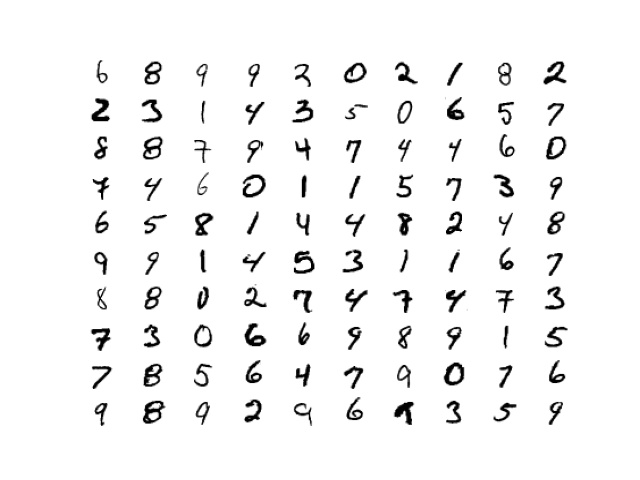 6 8 9 9 2 0 2 1 8 2
2 3 1 4 3 5 0 6 5 7
8 8 7 9 4 7 4 4 6 0
7 4 6 0 1 1 5 7 3 9
6 5 8 1 4 4 8 2 4 8
9 9 1 4 5 3 1 1 6 7
8 8 0 2 7 4 7 4 7 3
7 3 0 6 6 9 8 9 1 5
7 8 5 6 4 7 9 0 7 6
9 8 9 2 9 6 9 3 5 9